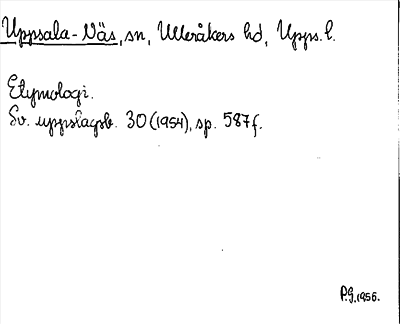 Uppsala-Näs, sn, Ulleråkers hd, Upps. l.
Etymologi.
Sv. uppslagsb. 30 (1954), sp. 587 f.
P.G. 1956.